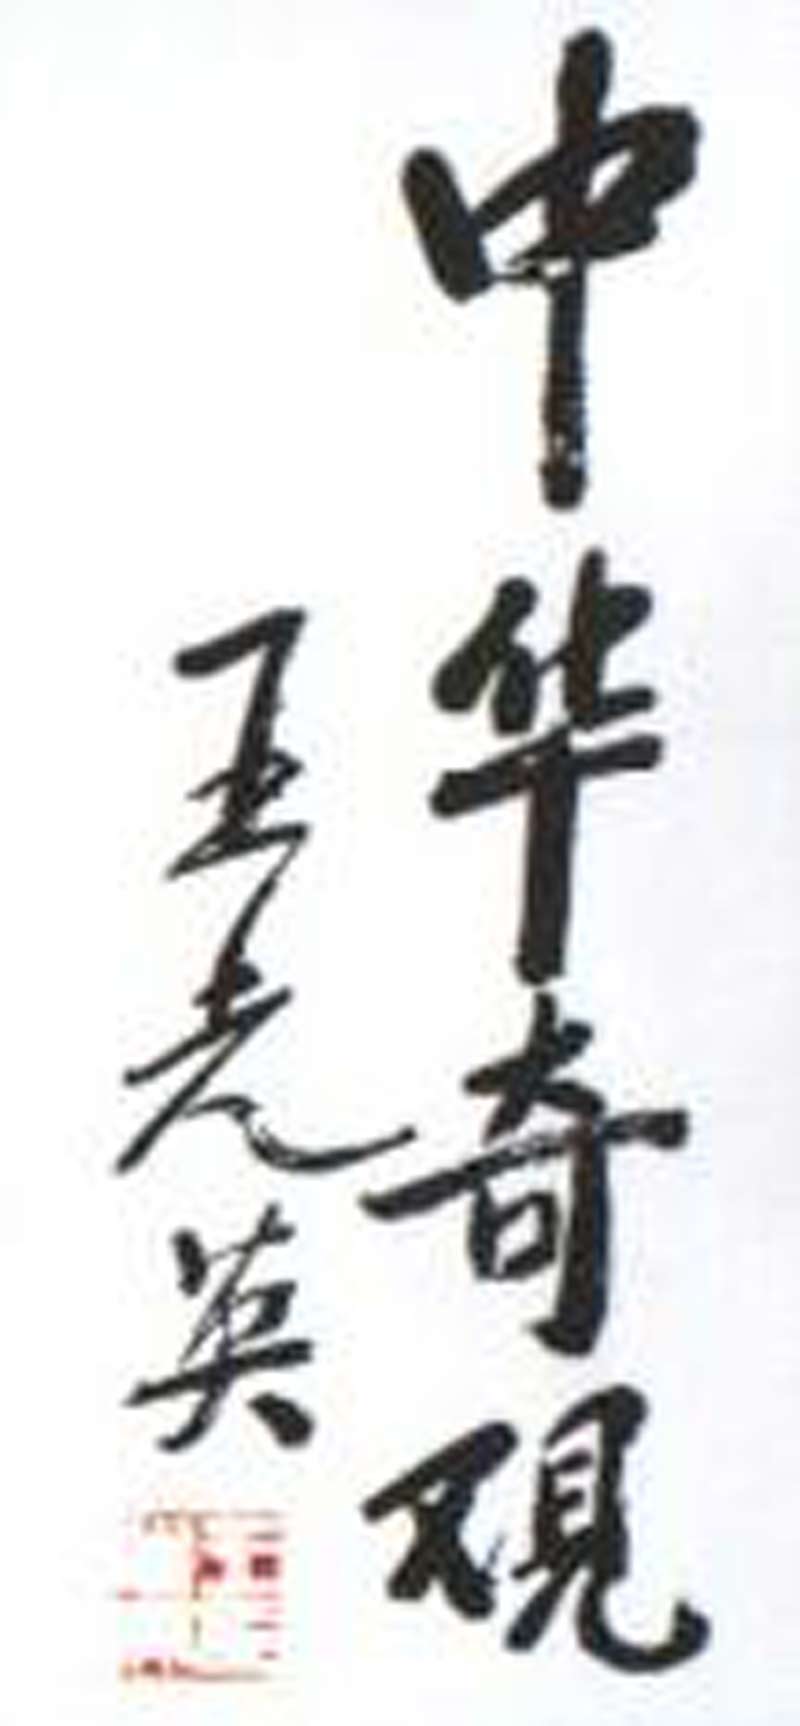 中华奇观
王光英